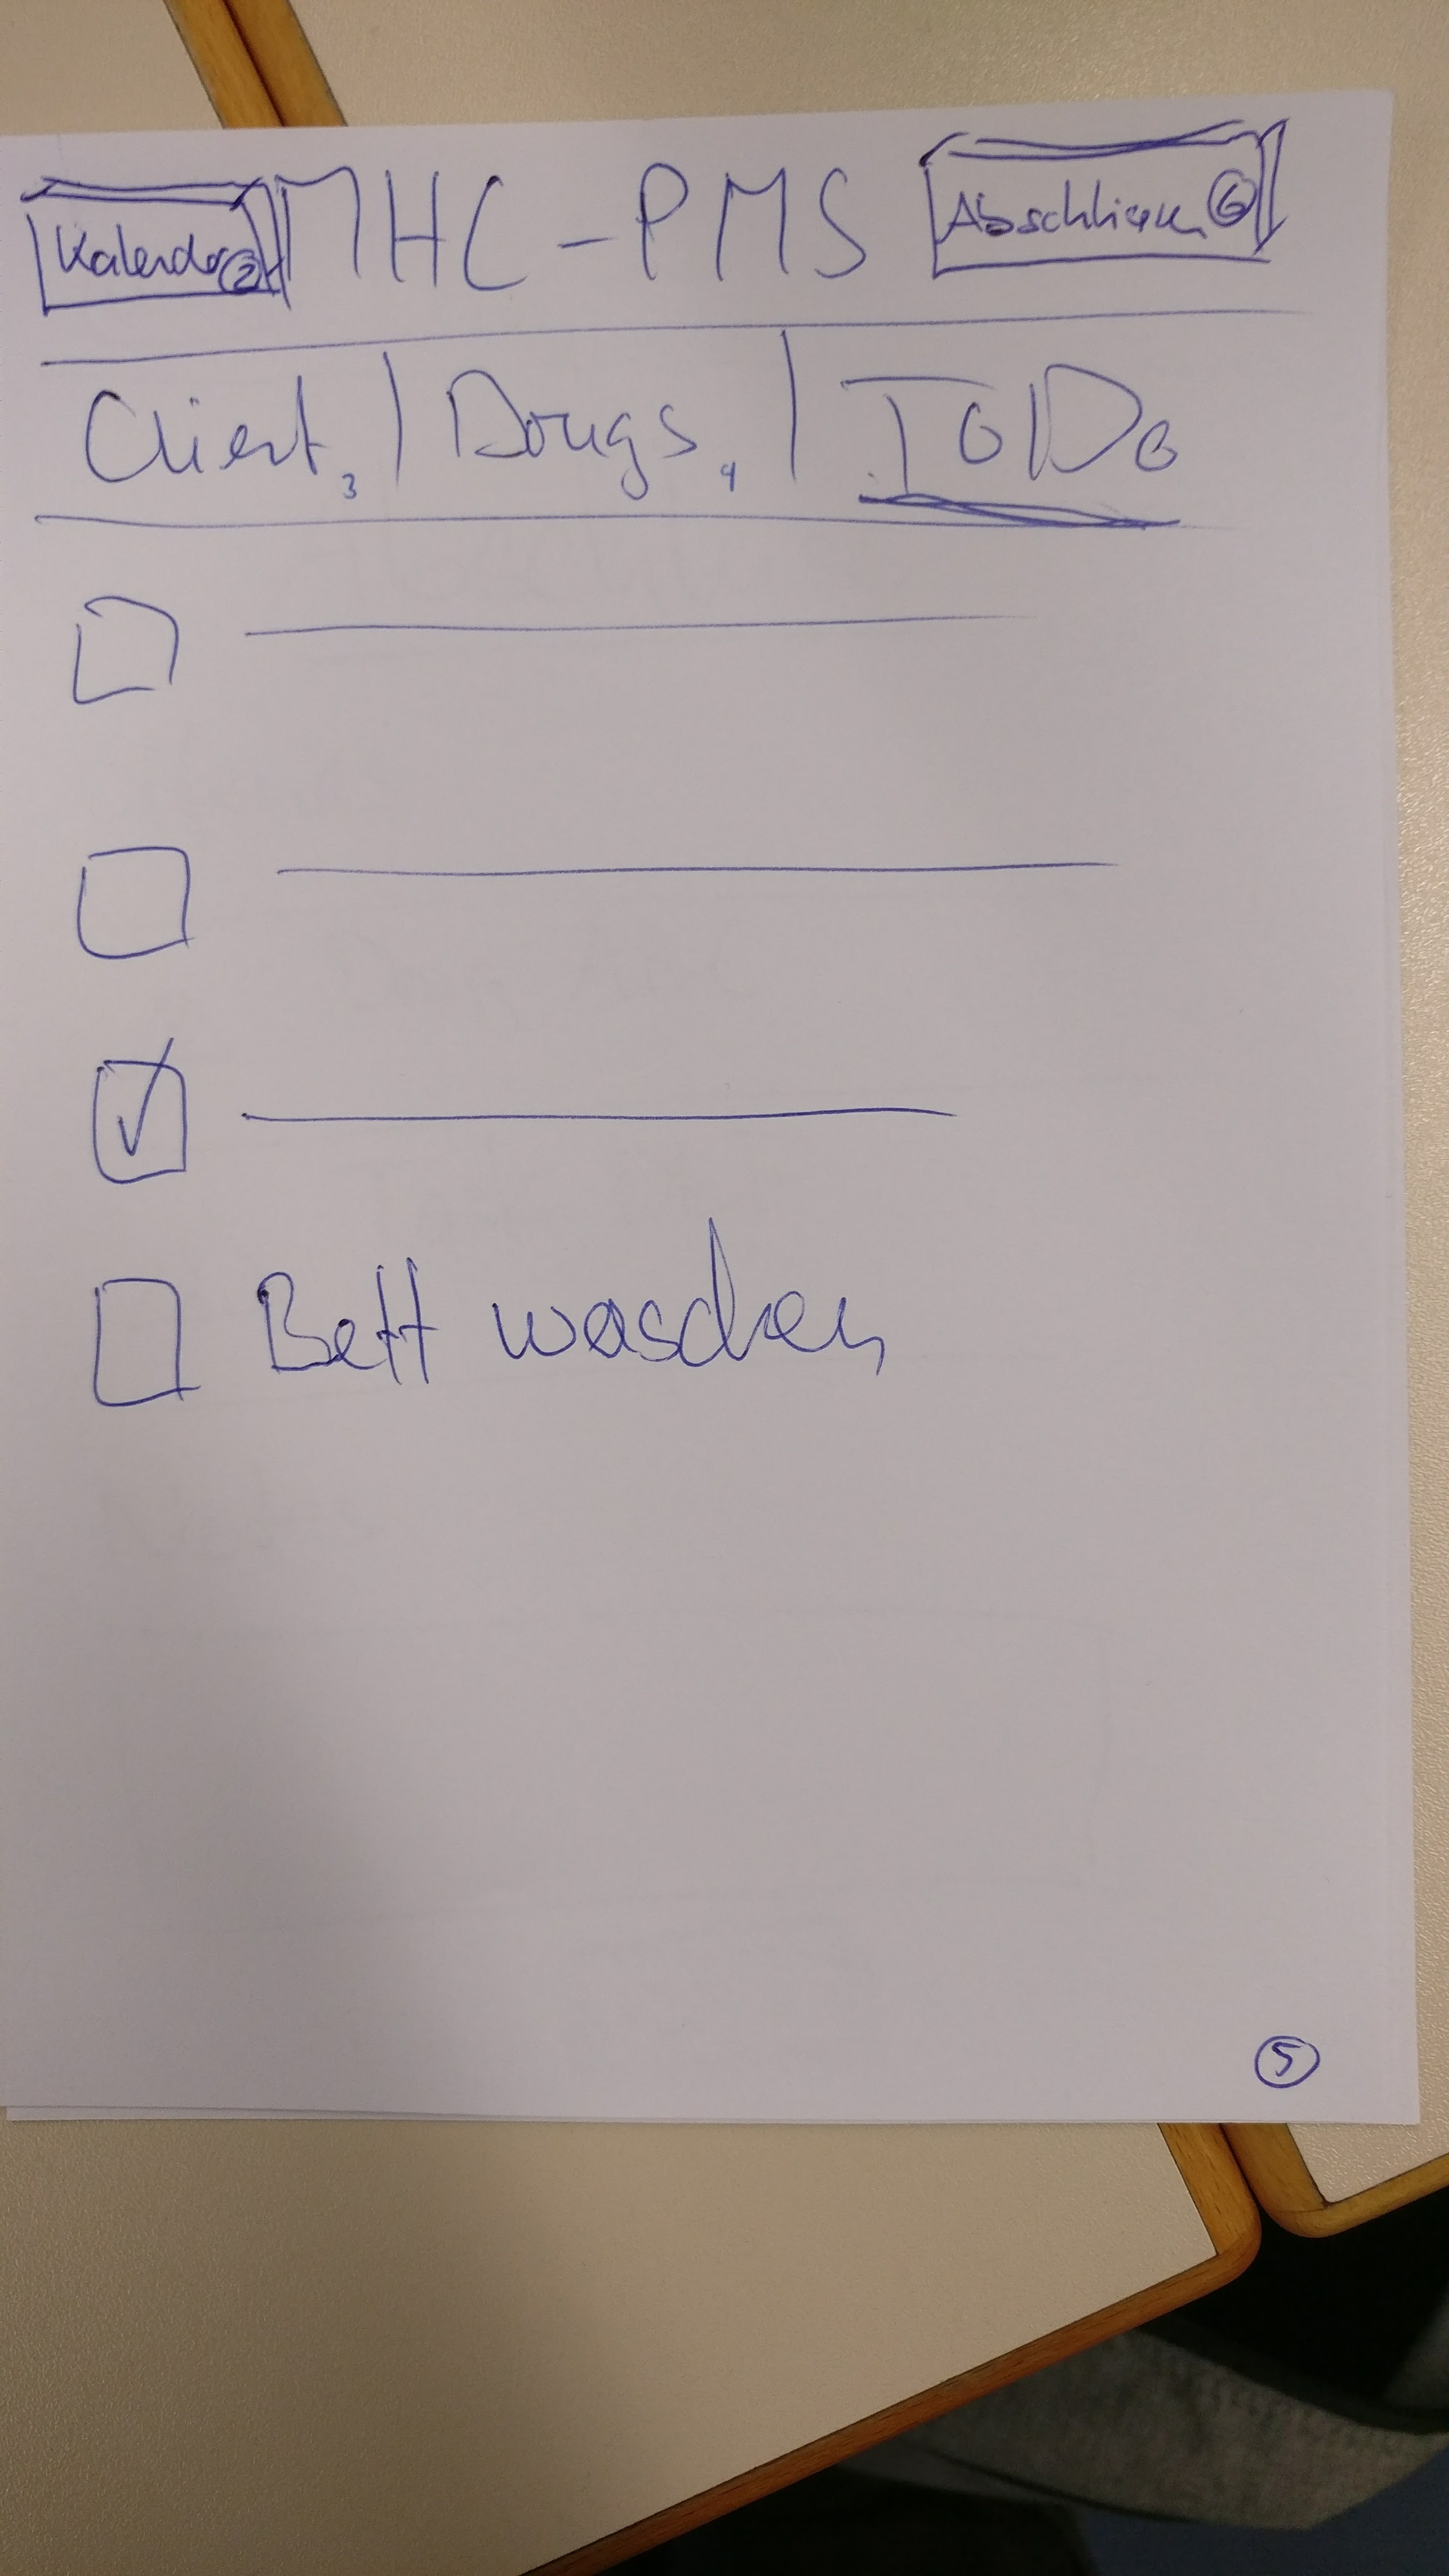 Kalender 2 MHC-PMS Abschliessen 6
Client 3 | Drugs 4 | ToDo
Bett waschen
5